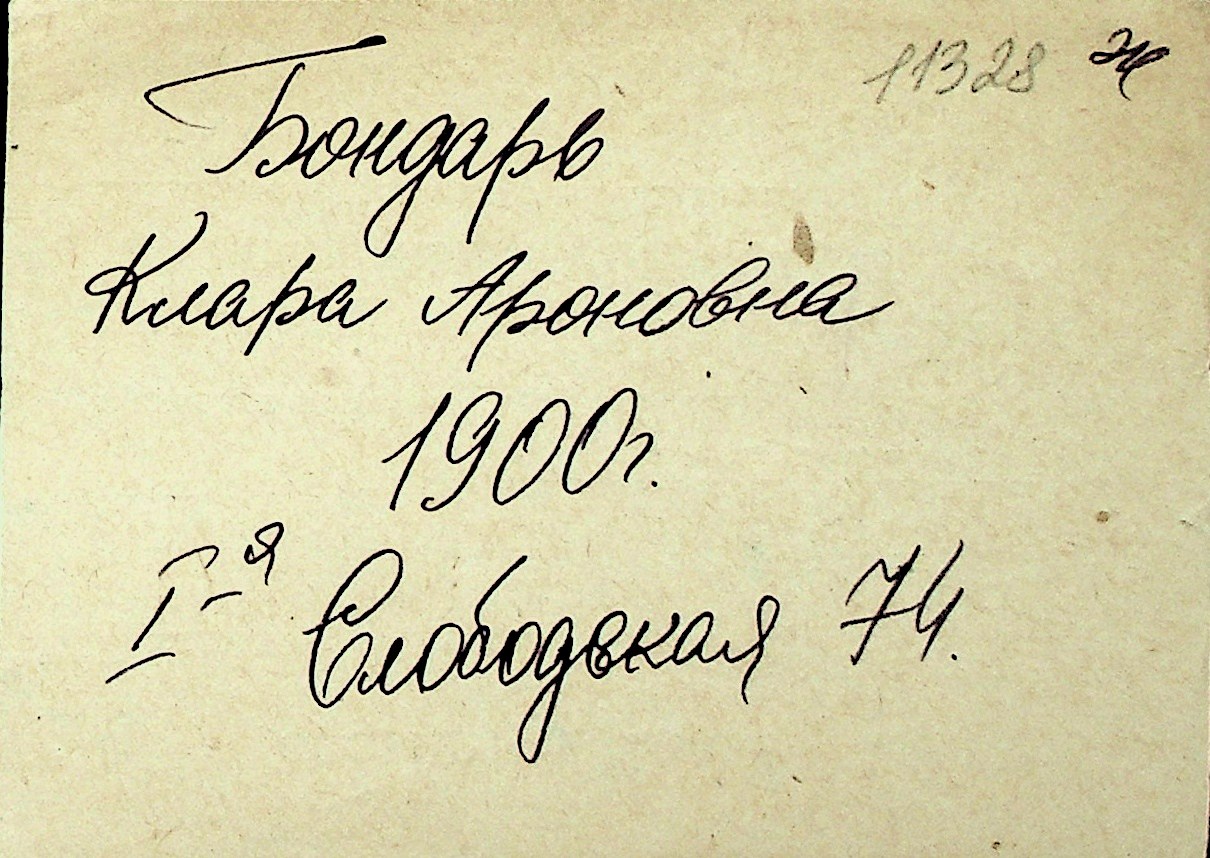 11328 Ж
Бондарь
Клара Ароновна
1900г.
I-я Слободская 74.